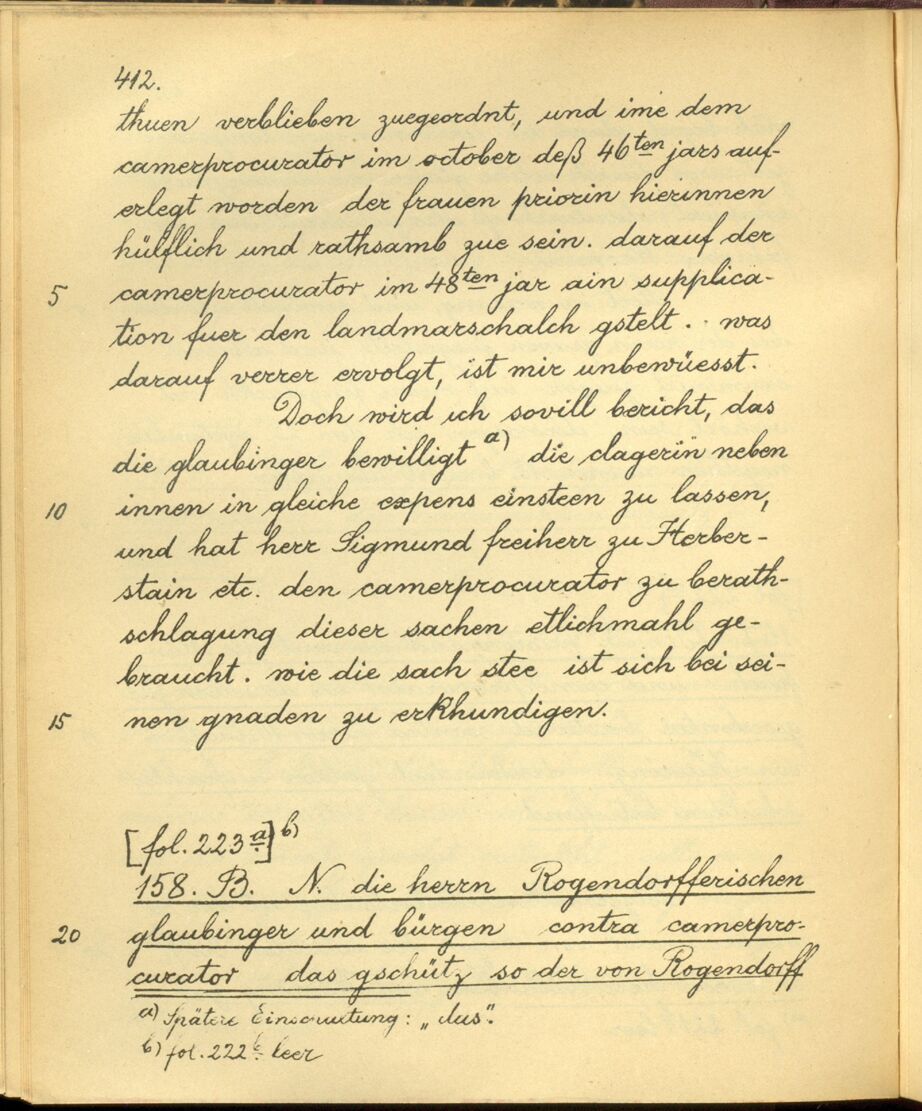 412.
thuen verblieben zuegeordnt, und ime dem
camerprocurator im october deß 46ten jars auf-
erlegt worden der frauen priorin hierinnen
hülflich und rathsamb zue sein. darauf der
5 camerprocurator im 48ten jar ain supplica-
tion fuer den landmarschalch gstelt. was
darauf verrer ervolgt, ist mir unbewüesst.
Doch wird ich sovill bericht, das
die glaubinger bewilligt a) die clagerin neben
10 innen in gleiche expens einsteen zu lassen,
und hat herr Sigmund freiherr zu Herber-
stain etc. den camerprocurator zu berath-
schlagung dieser sachen etlichmahl ge-
braucht. wie die sach stee ist sich bei sei-
15 nen gnaden zu erkhundigen.
[fol. 223 a.] b)
158. B. N. die herrn Rogendorfferischen
20 glaubinger und bürgen contra camerpro-
curator das gschütz so der von Rogendorff
a) Spätere Einschaltung: „das".
b) fol. 222 b. leer